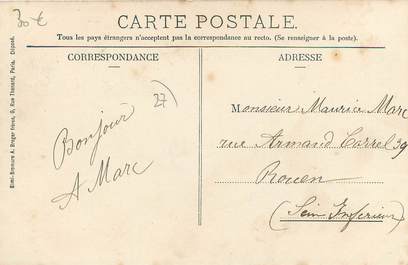 30 €
CARTE POSTALE.
Tous les pays étrangers n'acceptent pas la correspondance au recto. (Se renseigner à la poste).
CORRESPONDANCE
ADRESSE
27)
Bonjour
A Marc
Monsieur Maurice Marc
rue Armand Carrel 39
Rouen
(Sein Inférieur)
Simi-Bromure A. Breger frères, 9, Rue Thénard, Paris. Déposé.